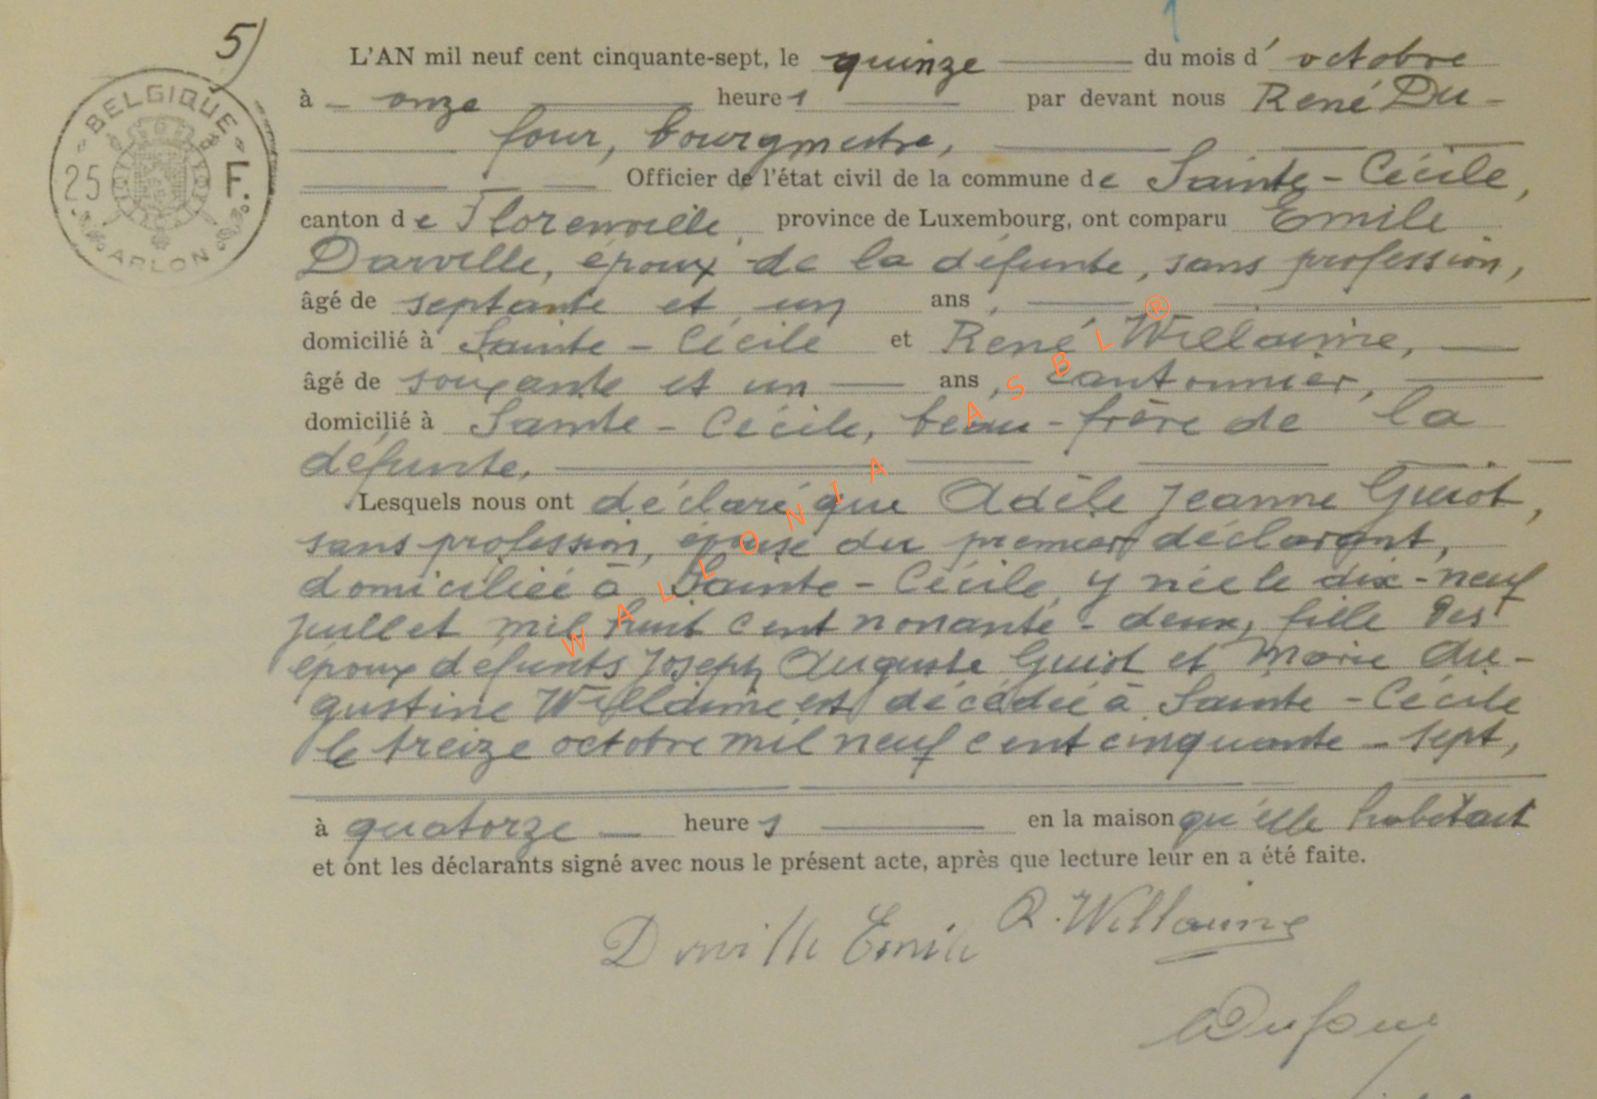 5)
BELGIQUE
25 F.
ARLON
L'AN mil neuf cent cinquante-sept, le quinze du mois d'octobre
à onze heures par devant nous René Du-
four, bourgmestre,
Officier de l'état civil de la commune de Sainte-Cécile,
canton de Florenville, province de Luxembourg, ont comparu Emile
Darville, époux de la défunte, sans profession,
âgé de septante et un ans,
domicilié à Sainte-Cécile et René Willaime,
âgé de soixante et un ans, cantonnier,
domicilié à Sainte-Cécile, beau-frère de la
défunte.
Lesquels nous ont déclaré que Adèle Jeanne Guiot,
sans profession, épouse du premier déclarant,
domiciliée à Sainte-Cécile, y née le dix-neuf
juillet mil huit cent nonante-deux, fille des
époux défunts Joseph Auguste Guiot et Marie Au-
gustine Willaime est décédée à Sainte-Cécile
le treize octobre mil neuf cent cinquante-sept,
à quatorze heures en la maison qu'elle habitait
et ont les déclarants signé avec nous le présent acte, après que lecture leur en a été faite.
Darville Emile R. Willaime
Dufour
WALLONIA ASBL ®